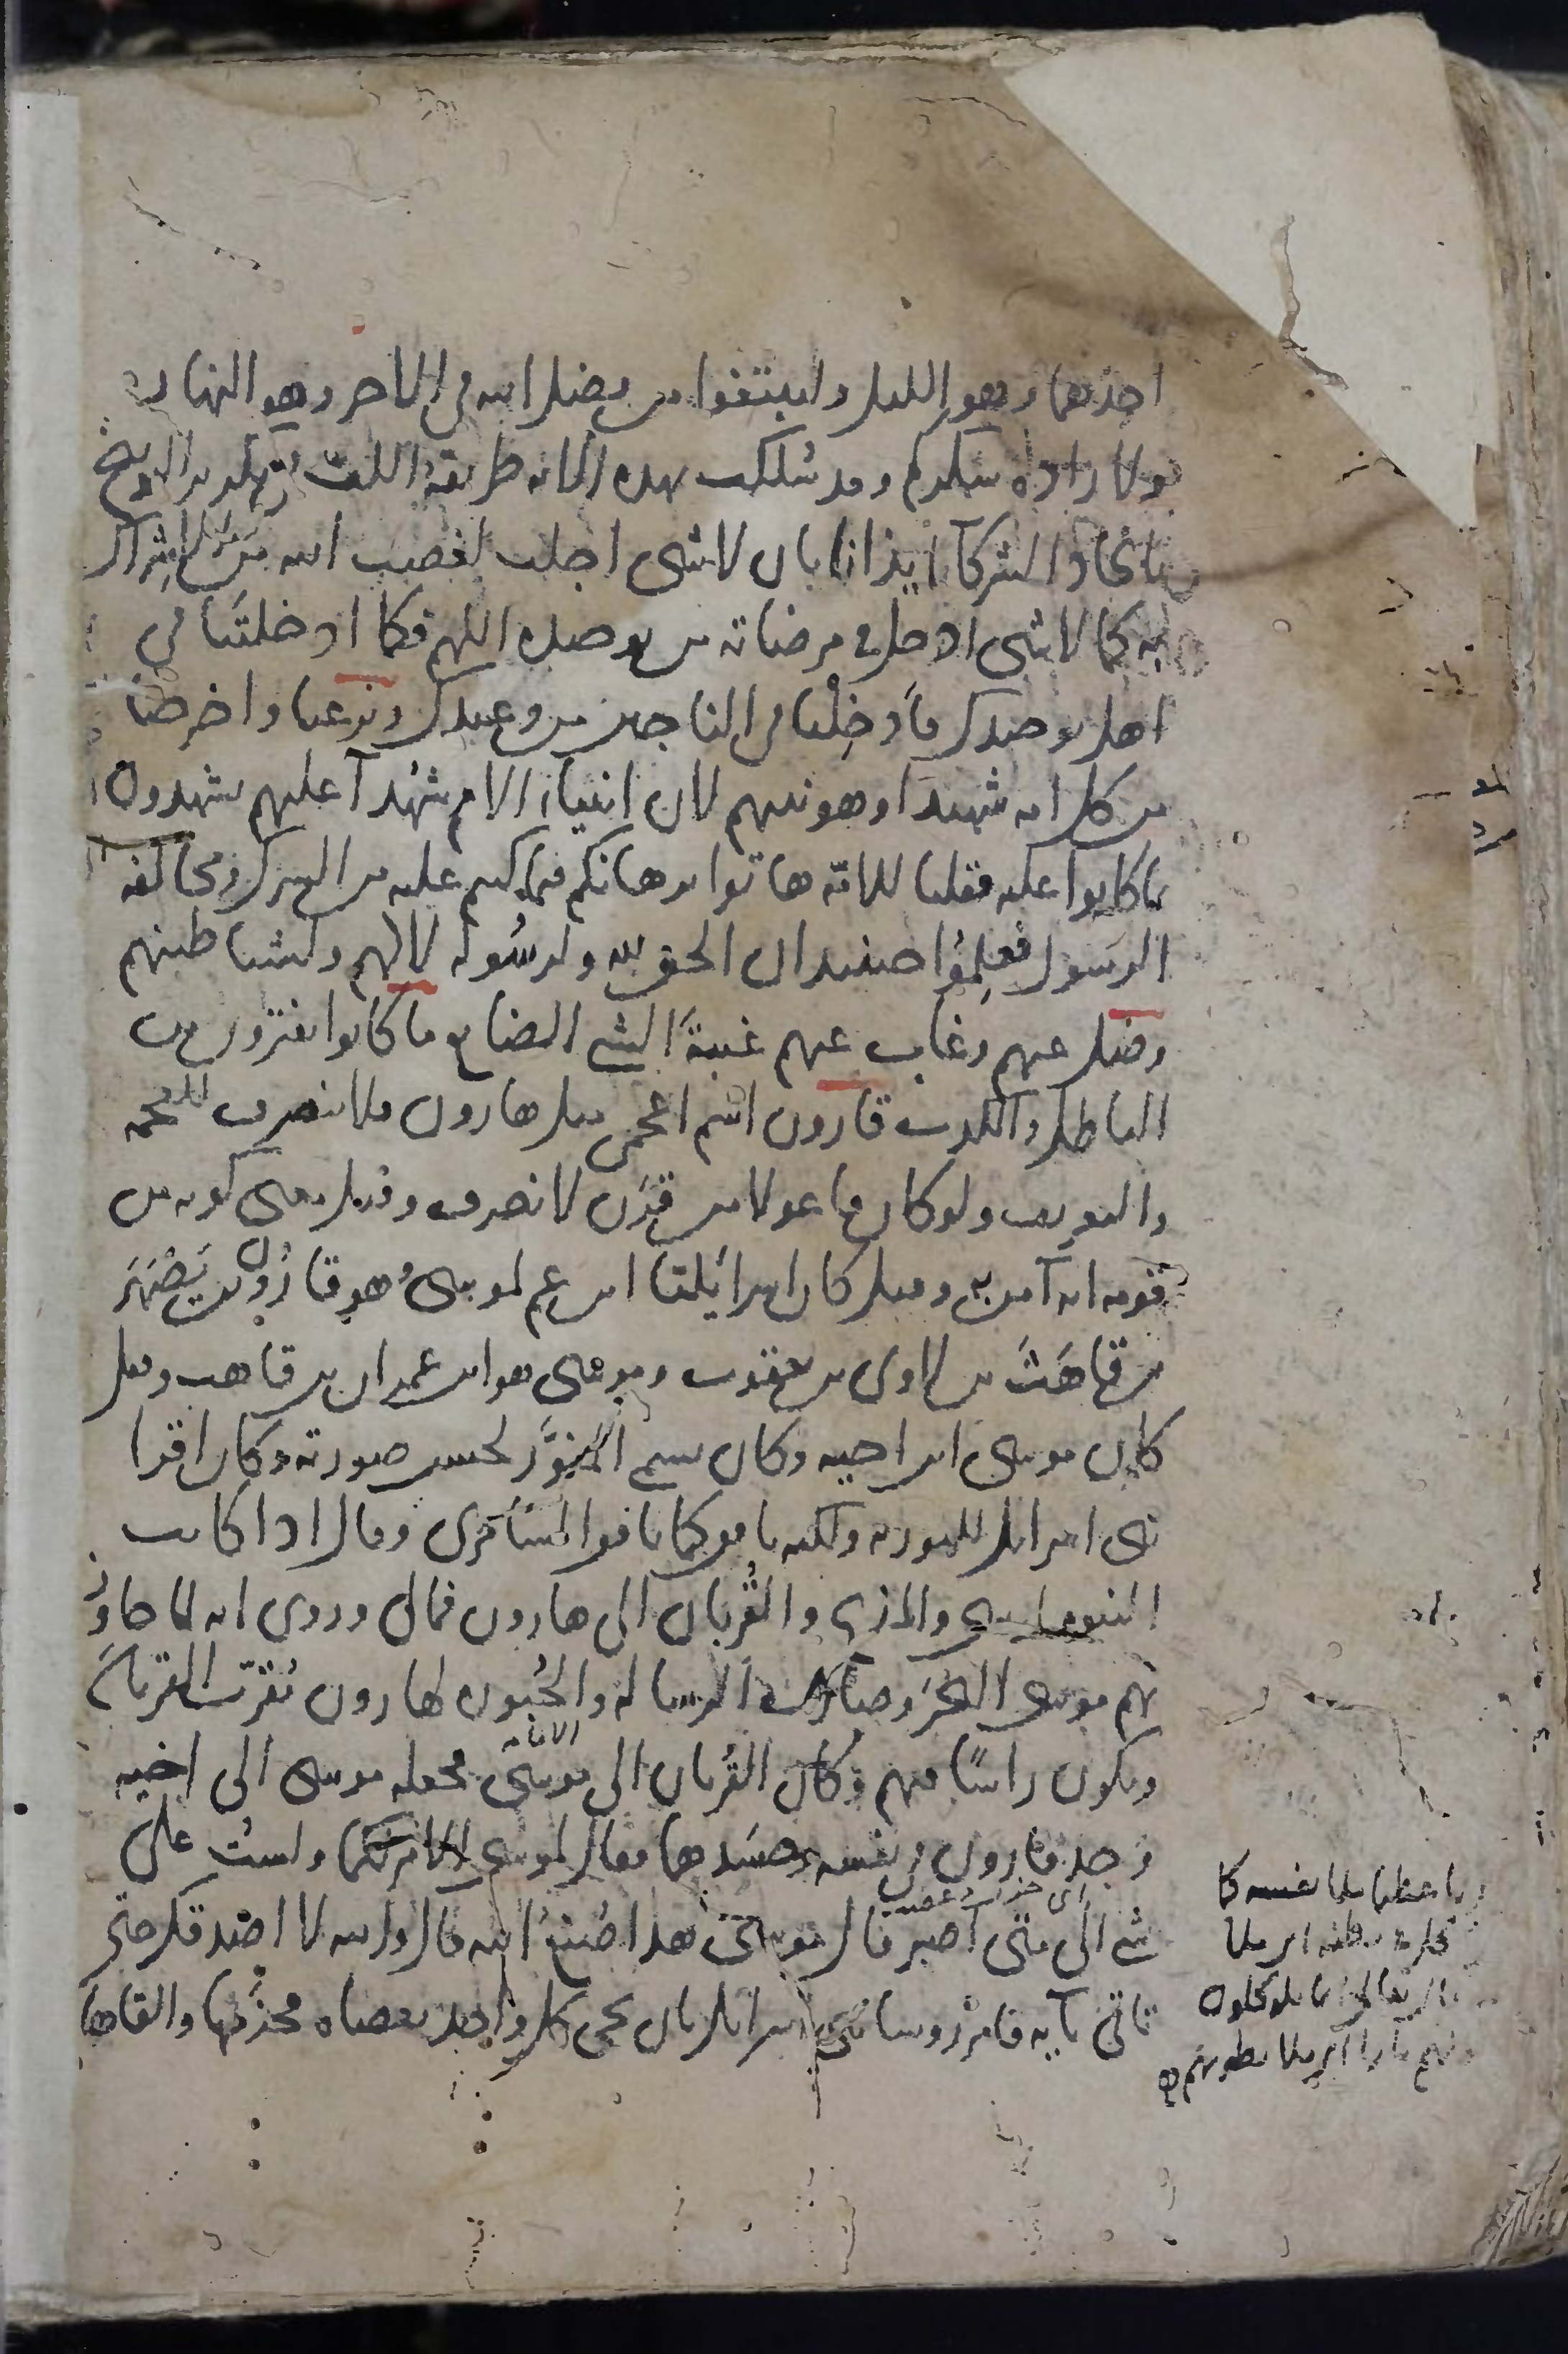 احدهما وهو الليل ولتبتغوا من فضل الله في الاخر وهو النهار
ولارادة شكركم وقد سلكت بهذه الاية طريقة اللف تكرير التوبيخ
باتخاذ الشركاء ايذانا بان لا شيء اجلب لغضب الله من الاشراك
به كما لا شيء ادخل في مرضاته من توحيده اللهم فكما ادخلتنا في
اهل توحيدك فأدخلنا في الناجين من وعيدك ونزعنا واخرجنا
من كل امة شهيدا وهو نبيهم لان انبياء الامم شهدآ عليهم يشهدون
بما كانوا عليه فقلنا للامة هاتوا برهانكم فيما كنتم عليه من الشرك ومخالفة
الرسول فعلموا حينئذ ان الحق لله ولرسوله لا لهم ولشياطينهم
وضل عنهم وغاب عنهم غيبة الشيء الضايع ما كانوا يفترون من
الباطل والكذب قارون اسم اعجمي مثل هارون ولا ينصرف للعجمة
والتعريف ولو كان فاعولا من قرن لانصرف وقيل معنى كونه من
قومه انه آمن به وقيل كان اسرائيليا ابن عم لموسى وهو قارون بن يصهر
بن قاهث بن لاوى بن يعقوب وموسى هو ابن عمران بن قاهث وقيل
كان موسى ابن اخيه وكان يسمى المنور لحسن صورته وكان اقرا
بنى اسرايل للتورية ولكنه نافق كما نافق السامرى وقال اذا كانت
النبوة لموسى والمذبح والقربان الى هارون فمالى وروى انه لما جاوز
بهم موسى البحر وصارت الرسالة والحبورة لهارون يقرب القربان
ويكون راسا فيهم وكان القربان الى موسى فجعله موسى الى اخيه
وجد قارون في نفسه وحسدهما فقال لموسى الامر لكما ولست على
شيء الى متى اصبر قال موسى هذا صنع الله قال والله لا اصدقك حتى
تاتى بآية فامر روسا بنى اسرايل بان يجيء كل واحد بعصاه فحزمها والقاها